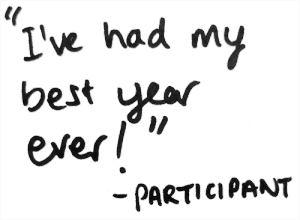 "I've had my
best year
ever!"
- PARTICIPANT